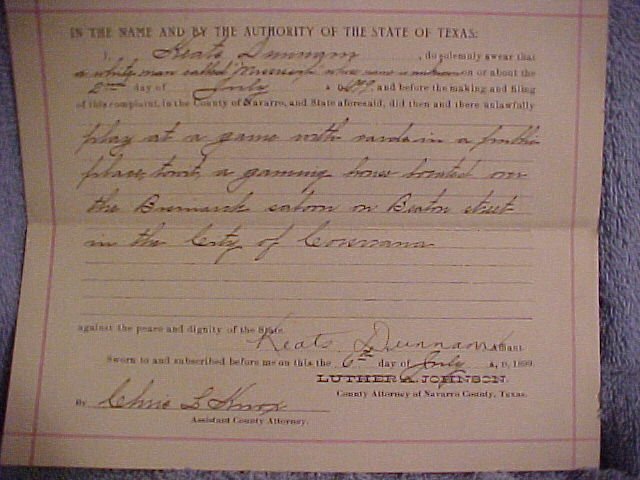 IN THE NAME AND BY THE AUTHORITY OF THE STATE OF TEXAS:
I, Keats Dunnam, do solemnly swear that
a white man called whose name is unknown on or about the
2nd day of July A. D. 1899, and before the making and filing
of this complaint, in the County of Navarro, and State aforesaid, did then and there unlawfully
play at a game with cards in a public
place, towit, a gaming house located over
the Bismarck saloon on Beaton street
in the City of Corsicana
against the peace and dignity of the State.
Keats Dunnam Affiant
Sworn to and subscribed before me on this the 6th day of July A. D. 1899.
LUTHER A. JOHNSON
County Attorney of Navarro County, Texas.
By Chas L Knox
Assistant County Attorney.